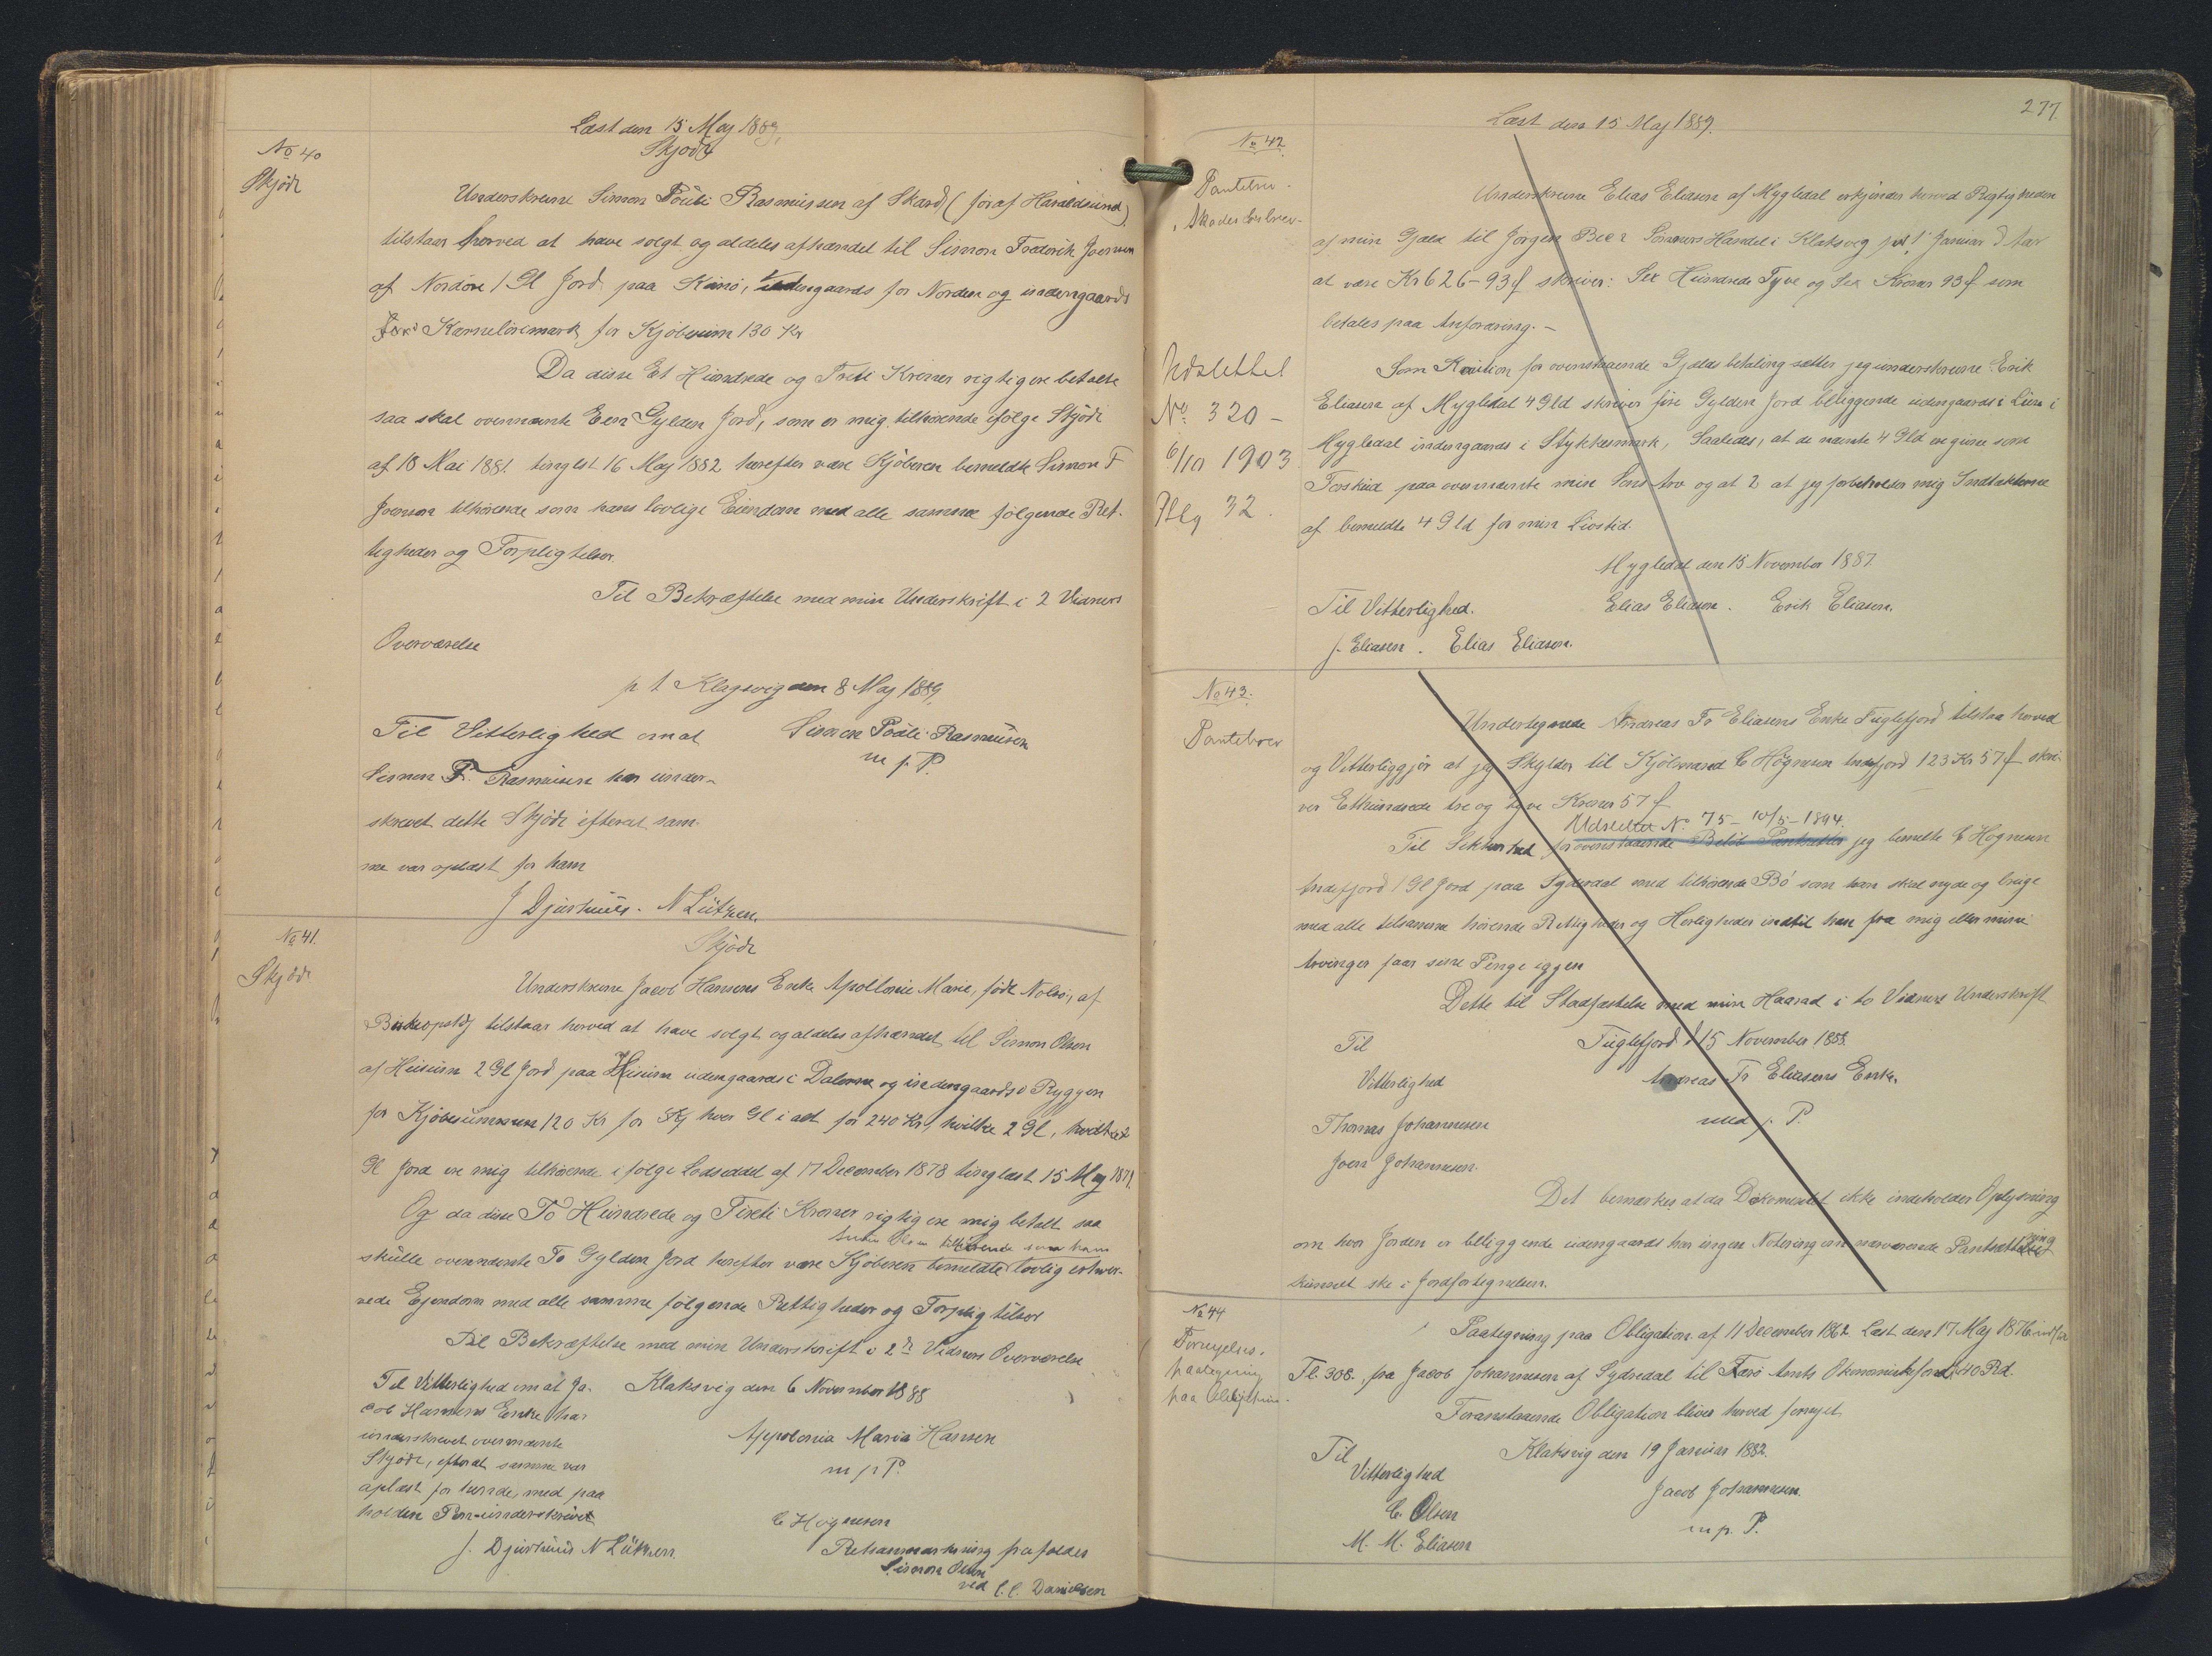 Læst den 15 Maj 1889,
Skjøde
No 40
Skjøde
Underskrevne Simon Pouli Rasmussen af Skard (før af Haraldsund)
tilstaar herved at have solgt og aldeles afhændet til Simon Frederik Joensen
af Nordøre 1 Gl Jord paa Kunø, udengaards for Norden og indengaards
i Karneliremark for Kjøbesum 130 Kr
Da disse Et Hundrede og Treti Kroner rigtig ere betalte
saa skal ovennævnte Een Gylden Jord, som er mig tilhørende ifølge Skjøde
af 18 Mai 1881. tinglæst 16 Maj 1882 herefter være Kjøberen bemeldte Simon F
Joensen tilhørende som hans lovlige Eiendom med alle samme følgende Ret-
tigheder og Forpligtelser.
Til Bekræftelse med min Underskrift i 2 Vidners
Overværelse
p t Klagsvig den 8 Maj 1889,
Til Vitterlighed om at
Simon Pouli Rasmussen
m p. P.
Simon P. Rasmussen har under-
skrevet dette Skjøde efterat sam-
me var oplæst for ham
J Djurhuus. N Lützen.
No 41.
Skjøde
Skjøde
Underskrevne Jacob Hansens Enke Apollonie Marie, født Nolsø, af
Biskopstøj tilstaar herved at have solgt og aldeles afhændet til Simon Olsen
af Husum 2 Gl Jord paa Husum udengaards i Dalerne og indengaards o Ryggen
for Kjøbesummen 120 Kr for hver Gl i alt for 240 Kr, hvilke 2 Gl,
Gl Jord ere mig tilhørende i følge Lodseddel af 17 December 1878 tinglæst 15 Maj 1879.
Og da disse To Hundrede og Fireti Kroner rigtig ere mig betalt saa
Simon Olsen tilhørende som hans
skulle ovennævnte To Gylden Jord herefter være Kjøberen bemeldte lovlig erhver-
vede Ejendom med alle samme følgende Rettigheder og Forpligtelser
Til Bekræftelse med min Underskrift i 2de Vidners Overværelse
Til Vitterlighed om at Ja-
Klaksvig den 6 November 1888
cob Hansens Enke har
underskrevet ovennævnte
Appolonia Maria Hansen
Skjøde, efterat samme var
m p. P.
oplæst for hende, med paa
holden Pen underskrevet
C Høgnesen
J. Djurhuus N Lützen.
Retsanmærkning frafaldes
Simon Olsen
ved C.C. Danielsen
277.
Læst den 15 Maj 1889.
No 42
Pantebrev-
Skadesløsbrev-
Underskrevne Elias Eliasen af Mygledal erkjender herved Rigtigheden
af min Gjæld til Jørgen Bech Sønners Handel i Klaksvig pr 1 Januar d Aar
at være Kr 626-93 f skriver: Sex Hundrede Tyve og Sex Kroner 93 f som
betales paa Anfordring. -
Udslettet
No. 320 -
6/10 1903
Flg 32.
Som Kaution for ovenstaaende Gjælds betaling sætter jeg underskrevne Erik
Eliasen af Mygledal 4 Gld skriver fire Gylden Jord beliggende udengaards i Lien i
Mygledal indengaards i Stykkesmark, Saaledes, at de nævnte 4 Gld ere givne som
Forskud paa ovennævnte min Søns Arv og at 2 at jeg forbeholder mig Indtækterne
af bemeldte 4 Gld for min Livstid.
Mygledal den 15 November 1887.
Til Vitterlighed.
Elias Eliasen. Erik Eliasen.
J. Eliasen. Elias Eliasen.
No 43.
Pantebrev
Undertegnede Andreas Fr Eliasens Enke Fuglefjord tilstaa herved
og Vitterliggjør at jeg Skylder til Kjøbmand C Høgnesen Andefjord 123 Kr 57 f skri-
ver Ethundrede tre og tyve Kroner 57 f
Udslettet No. 75 - 10/5 - 1894.
Til Sikkerhed for ovenstaaende Beløb Pantsætter jeg bemelte C Høgnesen
Andefjord 1 Gl Jord paa Syderdal med tilhørende Bø som han skal nyde og bruge
med alle tilsamme hørende Rettigheder og Herligheder indtil han fra mig eller mine
Arvinger faar sine Penge iggen
Dette til Stadfæstelse med min Haand i to Vidners Underskrift
Til
Fuglefjord d 15 November 1858.
Vitterlighed
Andreas Fr Eliasens Enke.
Thomas Johannesen
med p. P.
Joen Johannesen.
Det bemærkes at da Dokumentet ikke indeholder Oplysning
om hvor Jorden er beliggende udengaards har ingen Notering om nærværende Pantsætning
kunnet ske i Jordfortegnelsen.
No 44
Fornyelses-
paategning
paa Obligation.
Paategning paa Obligation af 11 December 1862. Læst den 17 Maj 1876 indf
Fl. 308. fra Jacob Johannesen af Sydredal til Færø Amts Økonomiske fond 40 Rd.
Foranstaaende Obligation bliver herved fornyet
Til
Klaksvig den 19 Januar 1882.
Vitterlighed
Jacob Johannesen.
C. Olsen
m p. P.
M. M. Eliasen